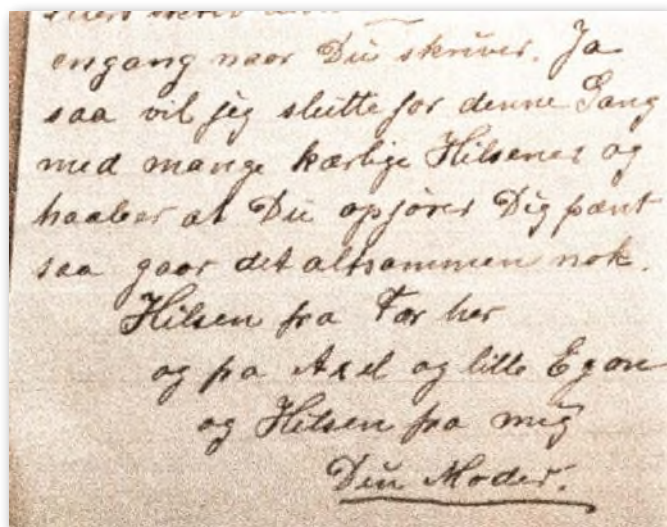 engang naar Du skriver. Ja
saa vil jeg slutte for denne Gang
med mange kærlige Hilsener og
haaber at Du opfører Dig pænt
saa gaar det altsammen nok.
Hilsen fra Far her
og fra Axel og lille Egon
og Hilsen fra mig
Din Moder.